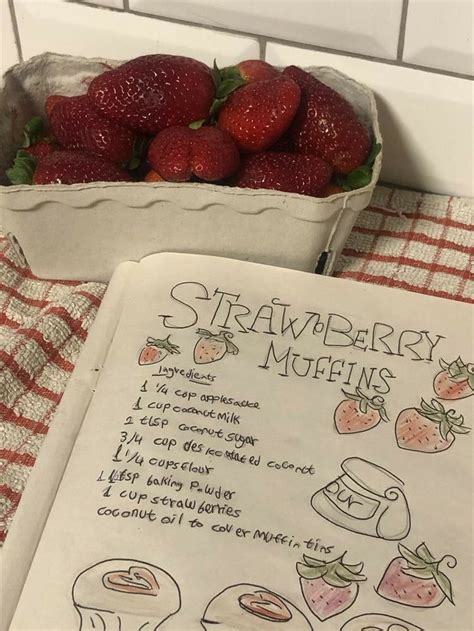 STRAWBERRY
MUFFINS
Ingredients
1 1/4 cup applesauce
1 cup coconut milk
2 tbsp coconut sugar
3/4 cup desiccated coconut
1 1/4 cups flour
1 tsp baking powder
1 cup strawberries
coconut oil to cover muffin tins